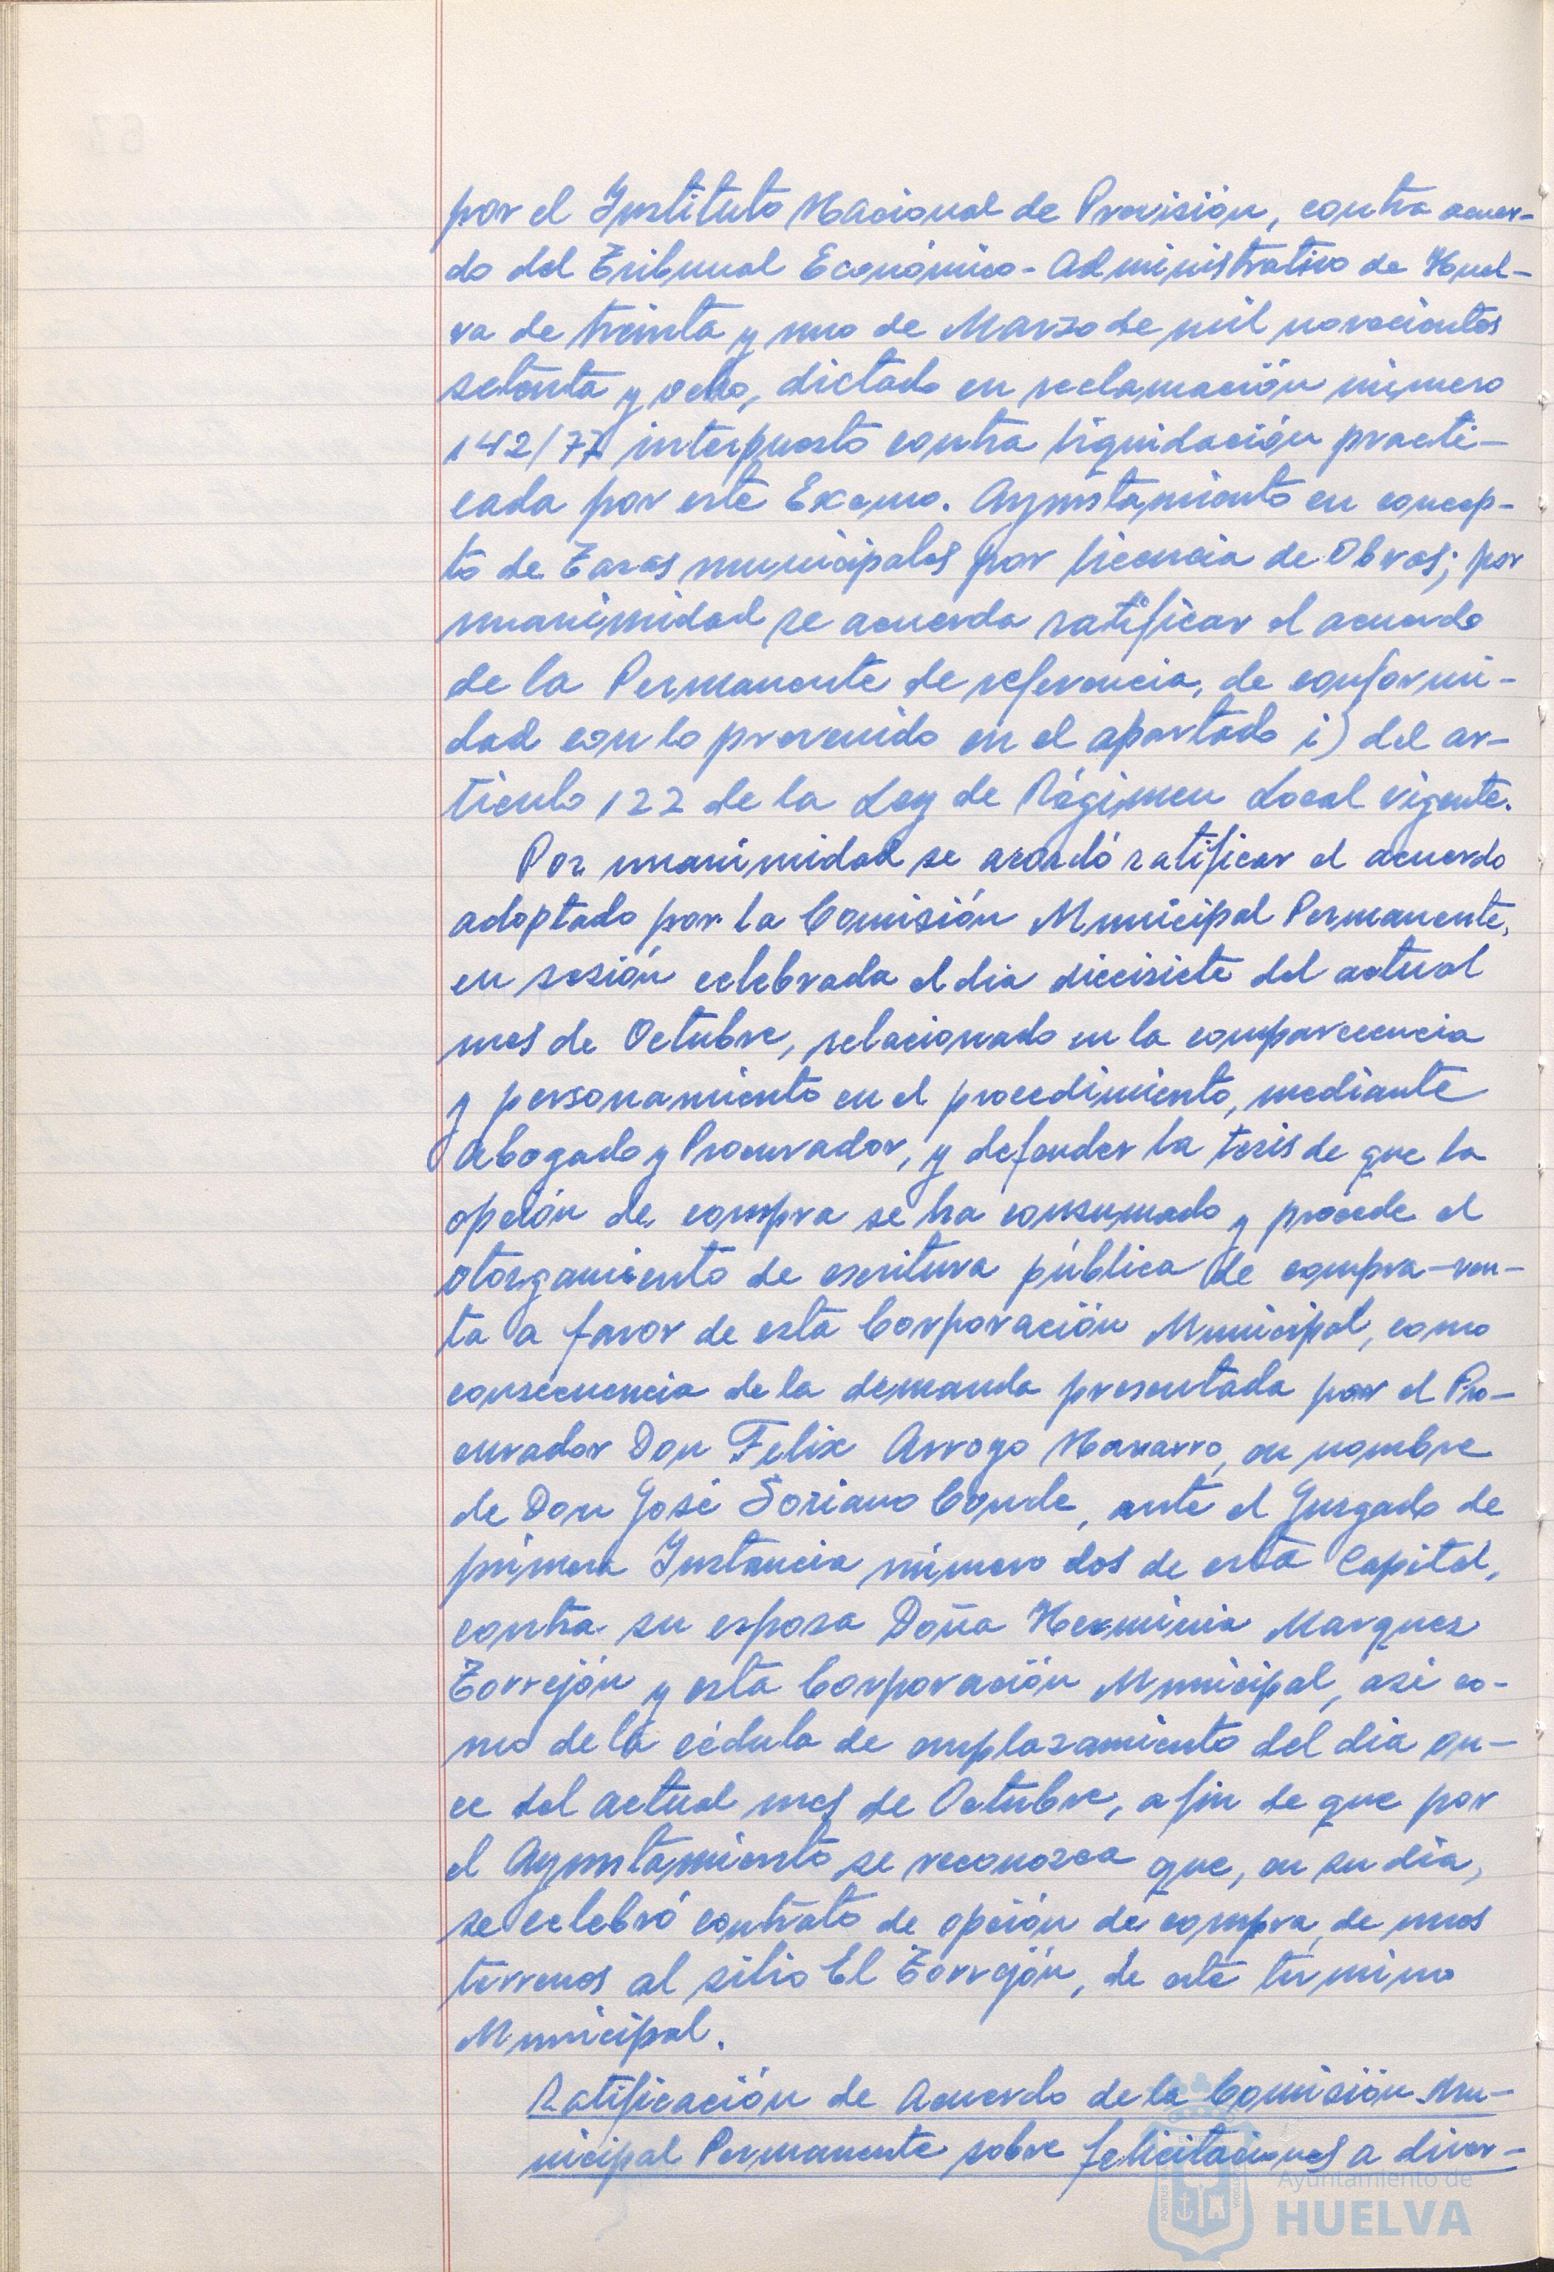 por el Instituto Nacional de Previsión, contra acuer-
do del Tribunal Económico-Administrativo de Huel-
va de treinta y uno de Marzo de mil novecientos
setenta y ocho, dictado en reclamación número
142/77 interpuesto contra liquidación practi-
cada por este Excmo. Ayuntamiento en concep-
to de Tasas municipales por licencia de Obras; por
unanimidad se acuerda ratificar el acuerdo
de la Permanente de referencia, de conformi-
dad con lo prevenido en el apartado i) del ar-
tículo 122 de la Ley de Régimen Local vigente.
Por unanimidad se acordó ratificar el acuerdo
adoptado por la Comisión Municipal Permanente,
en sesión celebrada el dia diecisiete del actual
mes de Octubre, relacionado en la comparecencia
y personamiento en el procedimiento, mediante
Abogado y Procurador, y defender la tesis de que la
opción de compra se ha consumado y procede el
otorgamiento de escritura pública de compra-ven-
ta a favor de esta Corporación Municipal, como
consecuencia de la demanda presentada por el Pro-
curador Don Felix Arroyo Navarro, en nombre
de Don José Soriano Conde, ante el Juzgado de
primera Instancia número dos de esta Capital,
contra su esposa Doña Herminia Marquez
Torrejón y esta Corporación Municipal, asi co-
mo de la cédula de emplazamiento del dia on-
ce del actual mes de Octubre, a fin de que por
el Ayuntamiento se reconozca que, en su dia,
se celebró contrato de opción de compra, de unos
terrenos al sitio El Torrejón, de este termino
Municipal.
Ratificación de Acuerdo de la Comisión Mu-
nicipal Permanente sobre felicitaciones a diver-
Ayuntamiento de
HUELVA